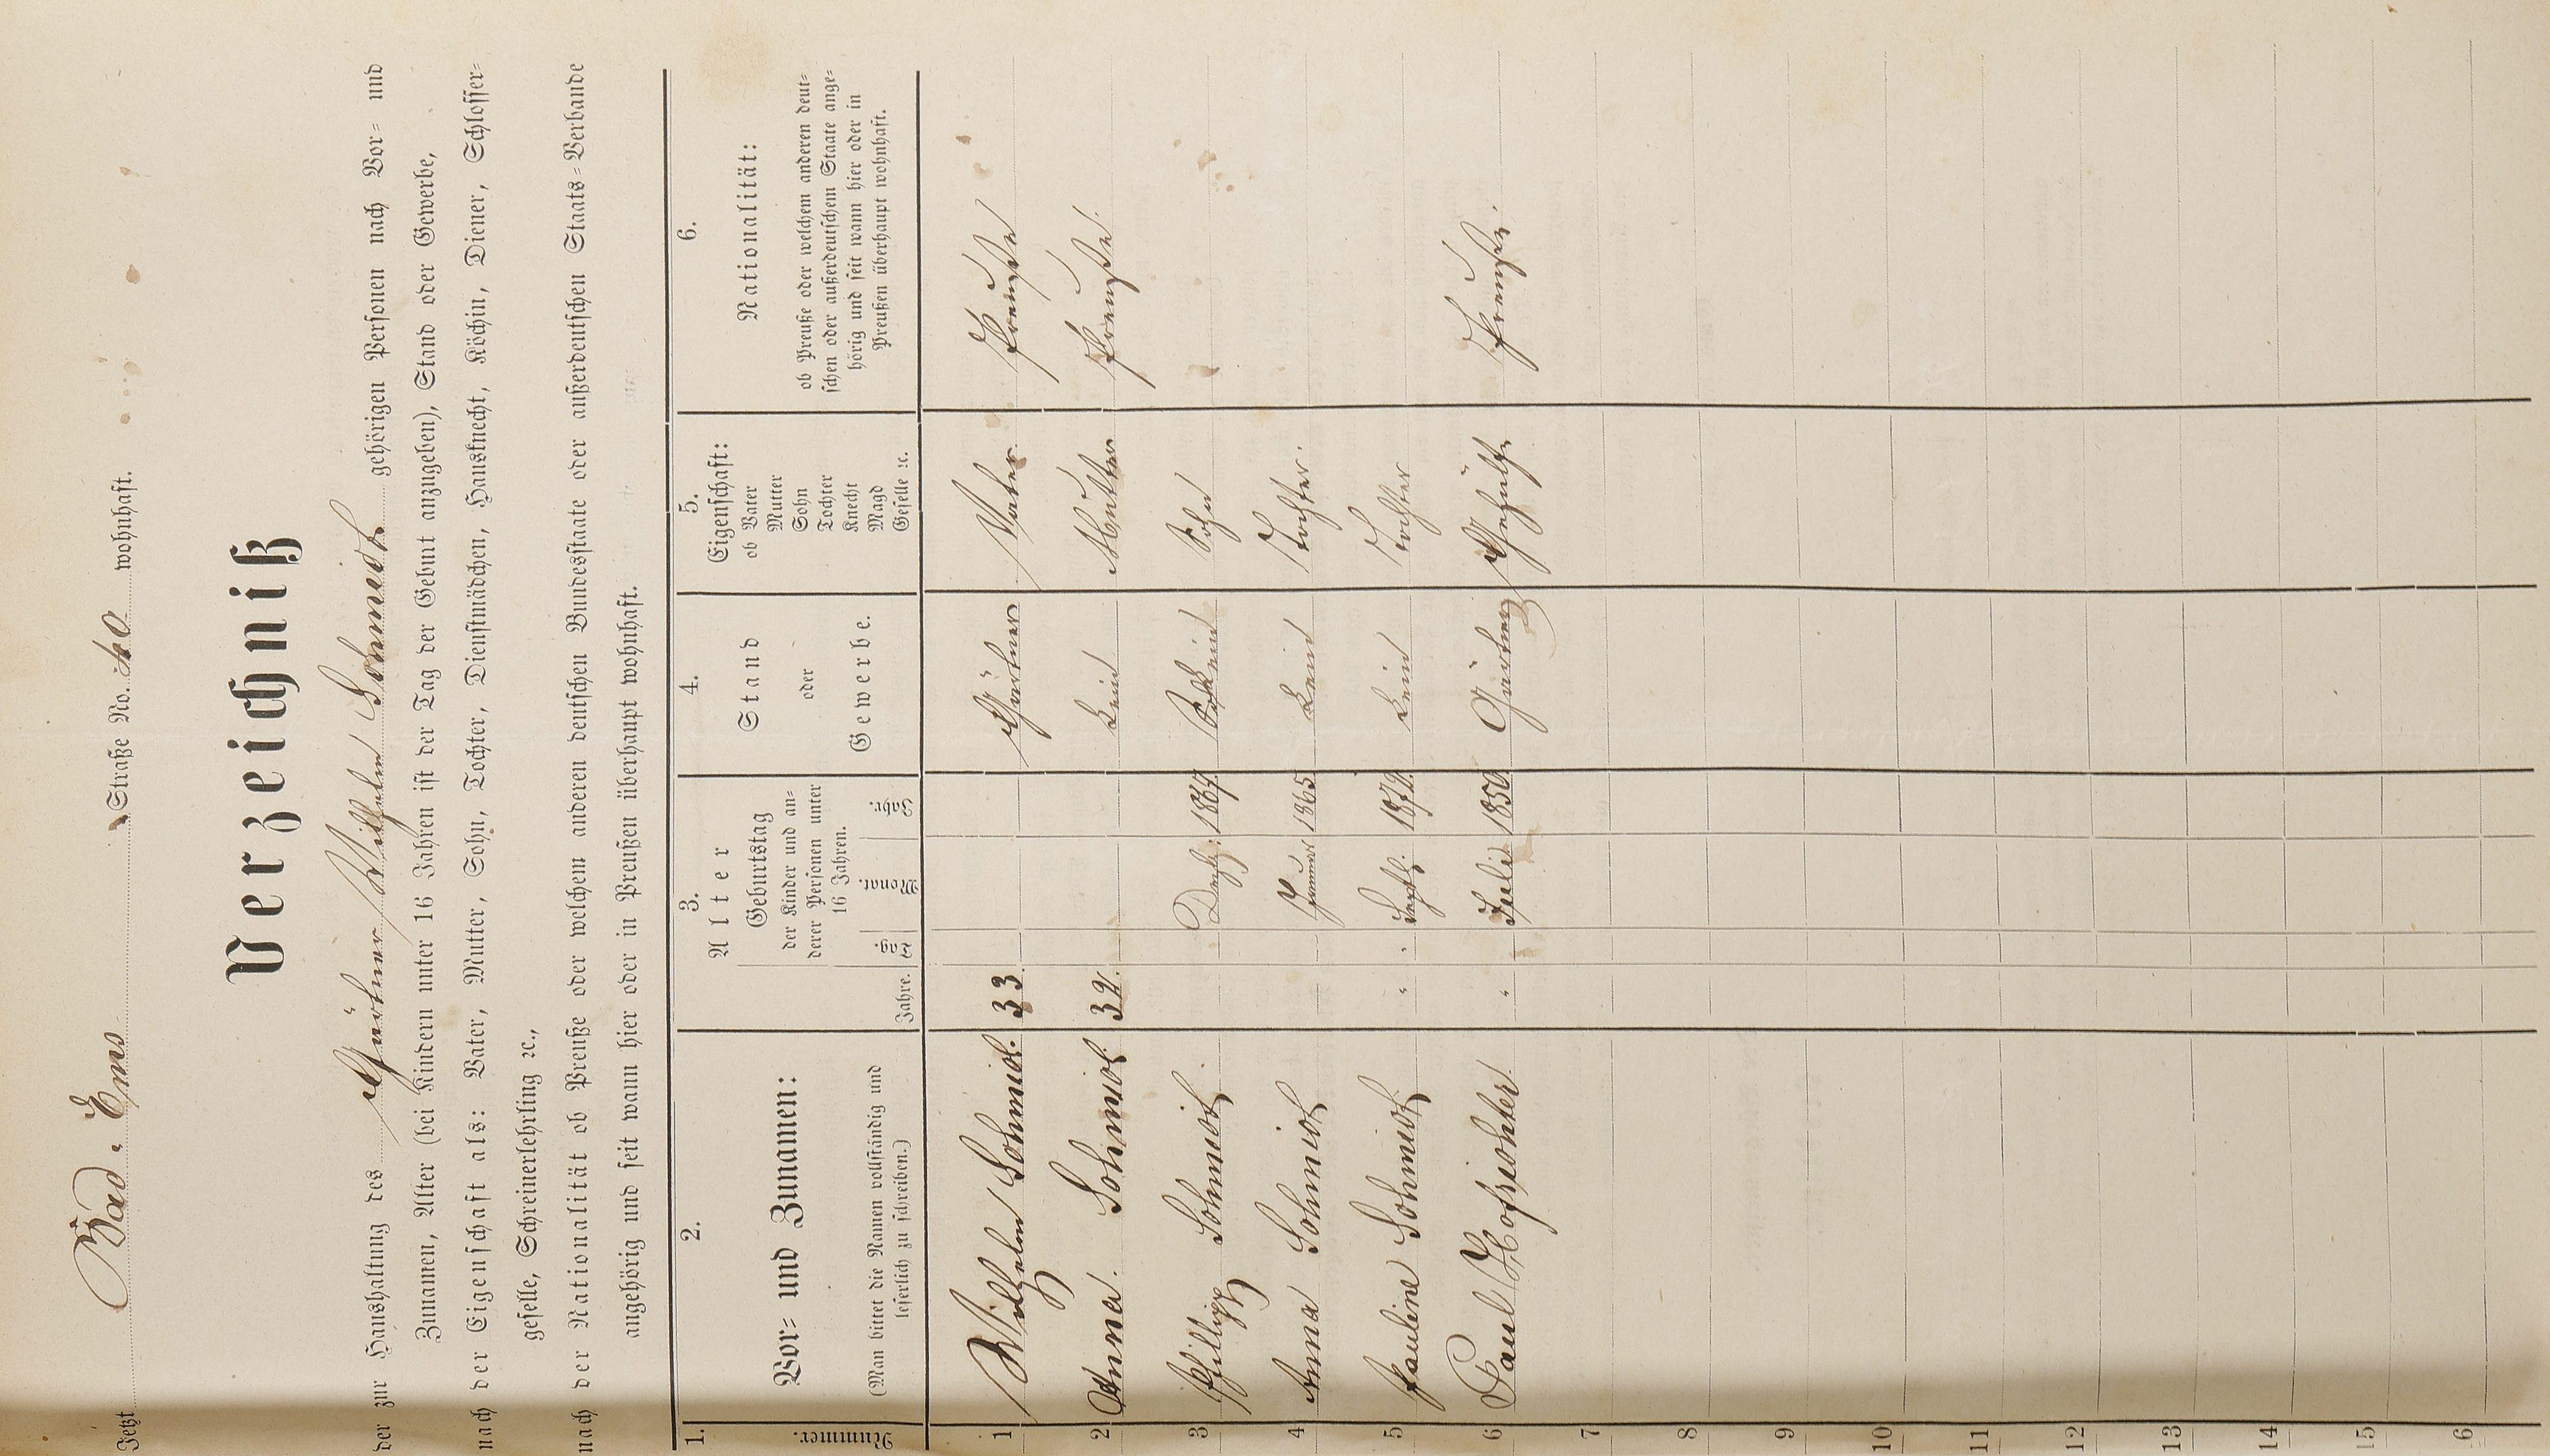 Jetzt Bad-Ems Straße No. wohnhaft.
Verzeichniß
der zur Haushaltung des Gärtner Wilhelm Schmidt gehörigen Personen nach Vor- und
Zunamen, Alter (bei Kindern unter 16 Jahren ist der Tag der Geburt anzugeben), Stand oder Gewerbe,
nach der Eigenschaft als: Vater, Mutter, Sohn, Tochter, Dienstmädchen, Hausknecht, Köchin, Diener, Schlosser-
geselle, Schreinerlehrling ꝛc.,
nach der Nationalität ob Preuße oder welchem anderen deutschen Bundesstaate oder außerdeutschen Staats-Verbande
angehörig und seit wann hier oder in Preußen überhaupt wohnhaft.
1. 2. 3. 4. 5. 6.
Nummer.
Vor- und Zunamen:
(Man bittet die Namen vollständig und
leserlich zu schreiben.)
Alter
Jahre.
Geburtstag
der Kinder und an-
derer Personen unter
16 Jahren.
Tag Monat. Jahr.
Stand
oder
Gewerbe.
Eigenschaft:
ob Vater
Mutter
Sohn
Tochter
Knecht
Magd
Geselle ꝛc.
Nationalität:
ob Preuße oder welchem anderen deut-
schen oder außerdeutschem Staate ange-
hörig und seit wann hier oder in
Preußen überhaupt wohnhaft.
1 Wilhelm Schmidt. 33. Gärtner Vater Preuße
2 Anna. Schmidt. 32. kein Mutter Preuße.
3 Phillipp Schmidt. Dezb. 1867 kein Sohn
4 Anna Schmidt Januar 1865 kein Tochter.
5 Pauline Schmidt. " Sept. kein Tochter
6 Paul Hofrichter " Juli 1850 Gärtner Gehülfe Preuße.
7
8
9
10
11
12
13
14
15
6